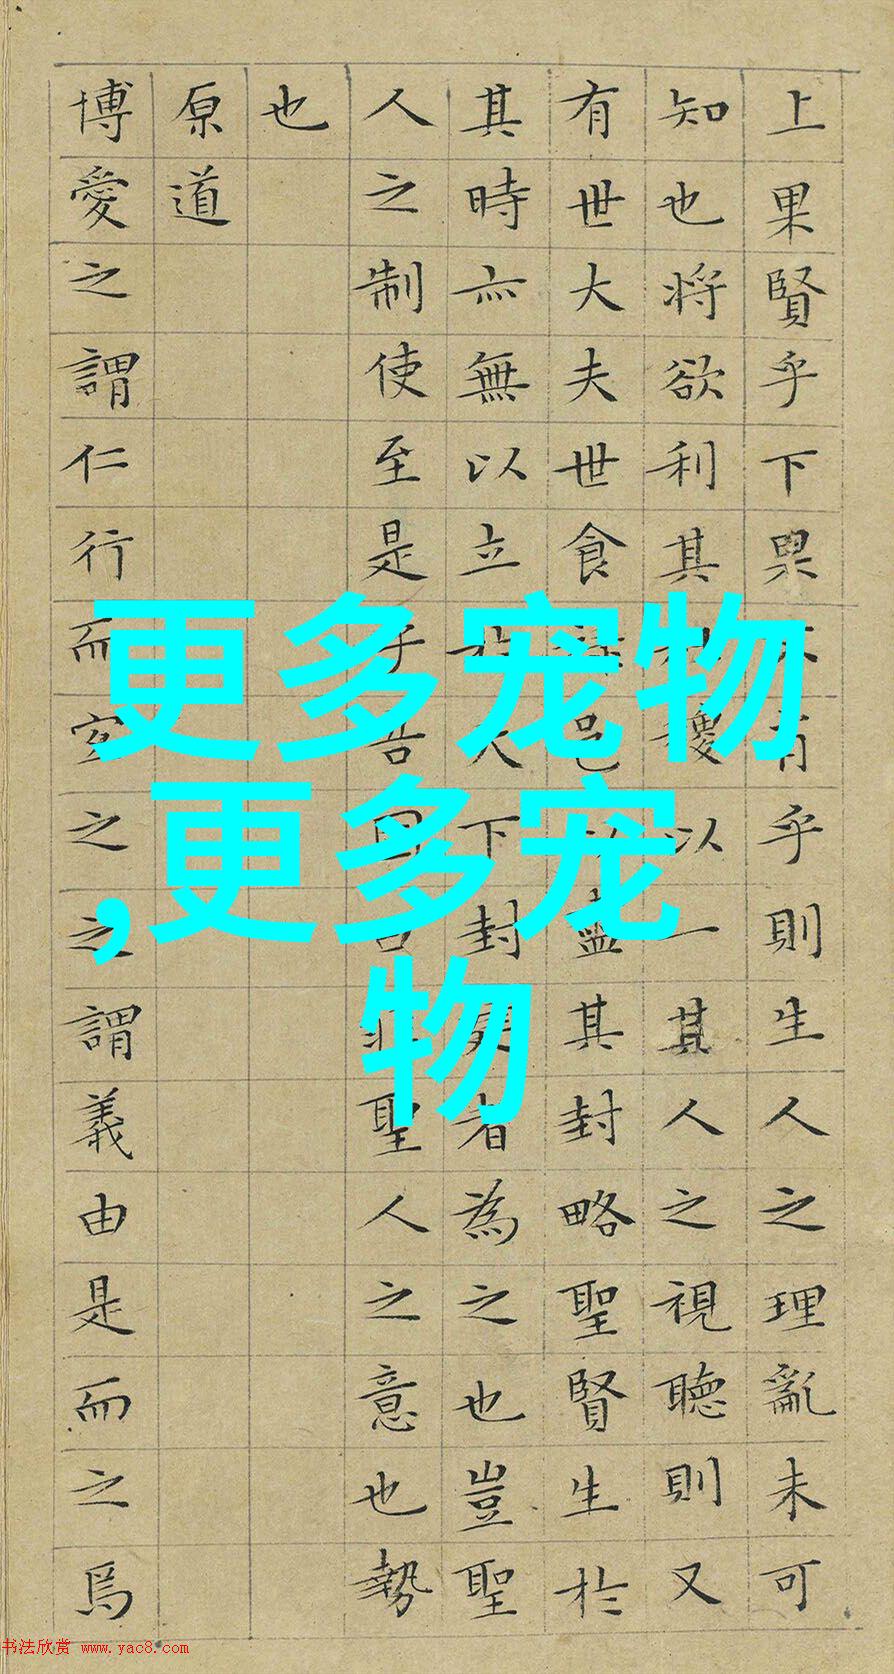 上果賢乎下果不肖乎則生人之理亂未可
知也將欲利其社稷以一其人之視聽則又
有世大夫世食祿邑以盡其封略聖賢生於
其時亦無以立於天下封建者為之也豈聖
人之制使至是乎吾固曰非聖人之意也勢
也
原道
博愛之謂仁行而宜之之謂義由是而之焉
更多宠物
,更多宠
物
书法欣赏 www.yac8.com